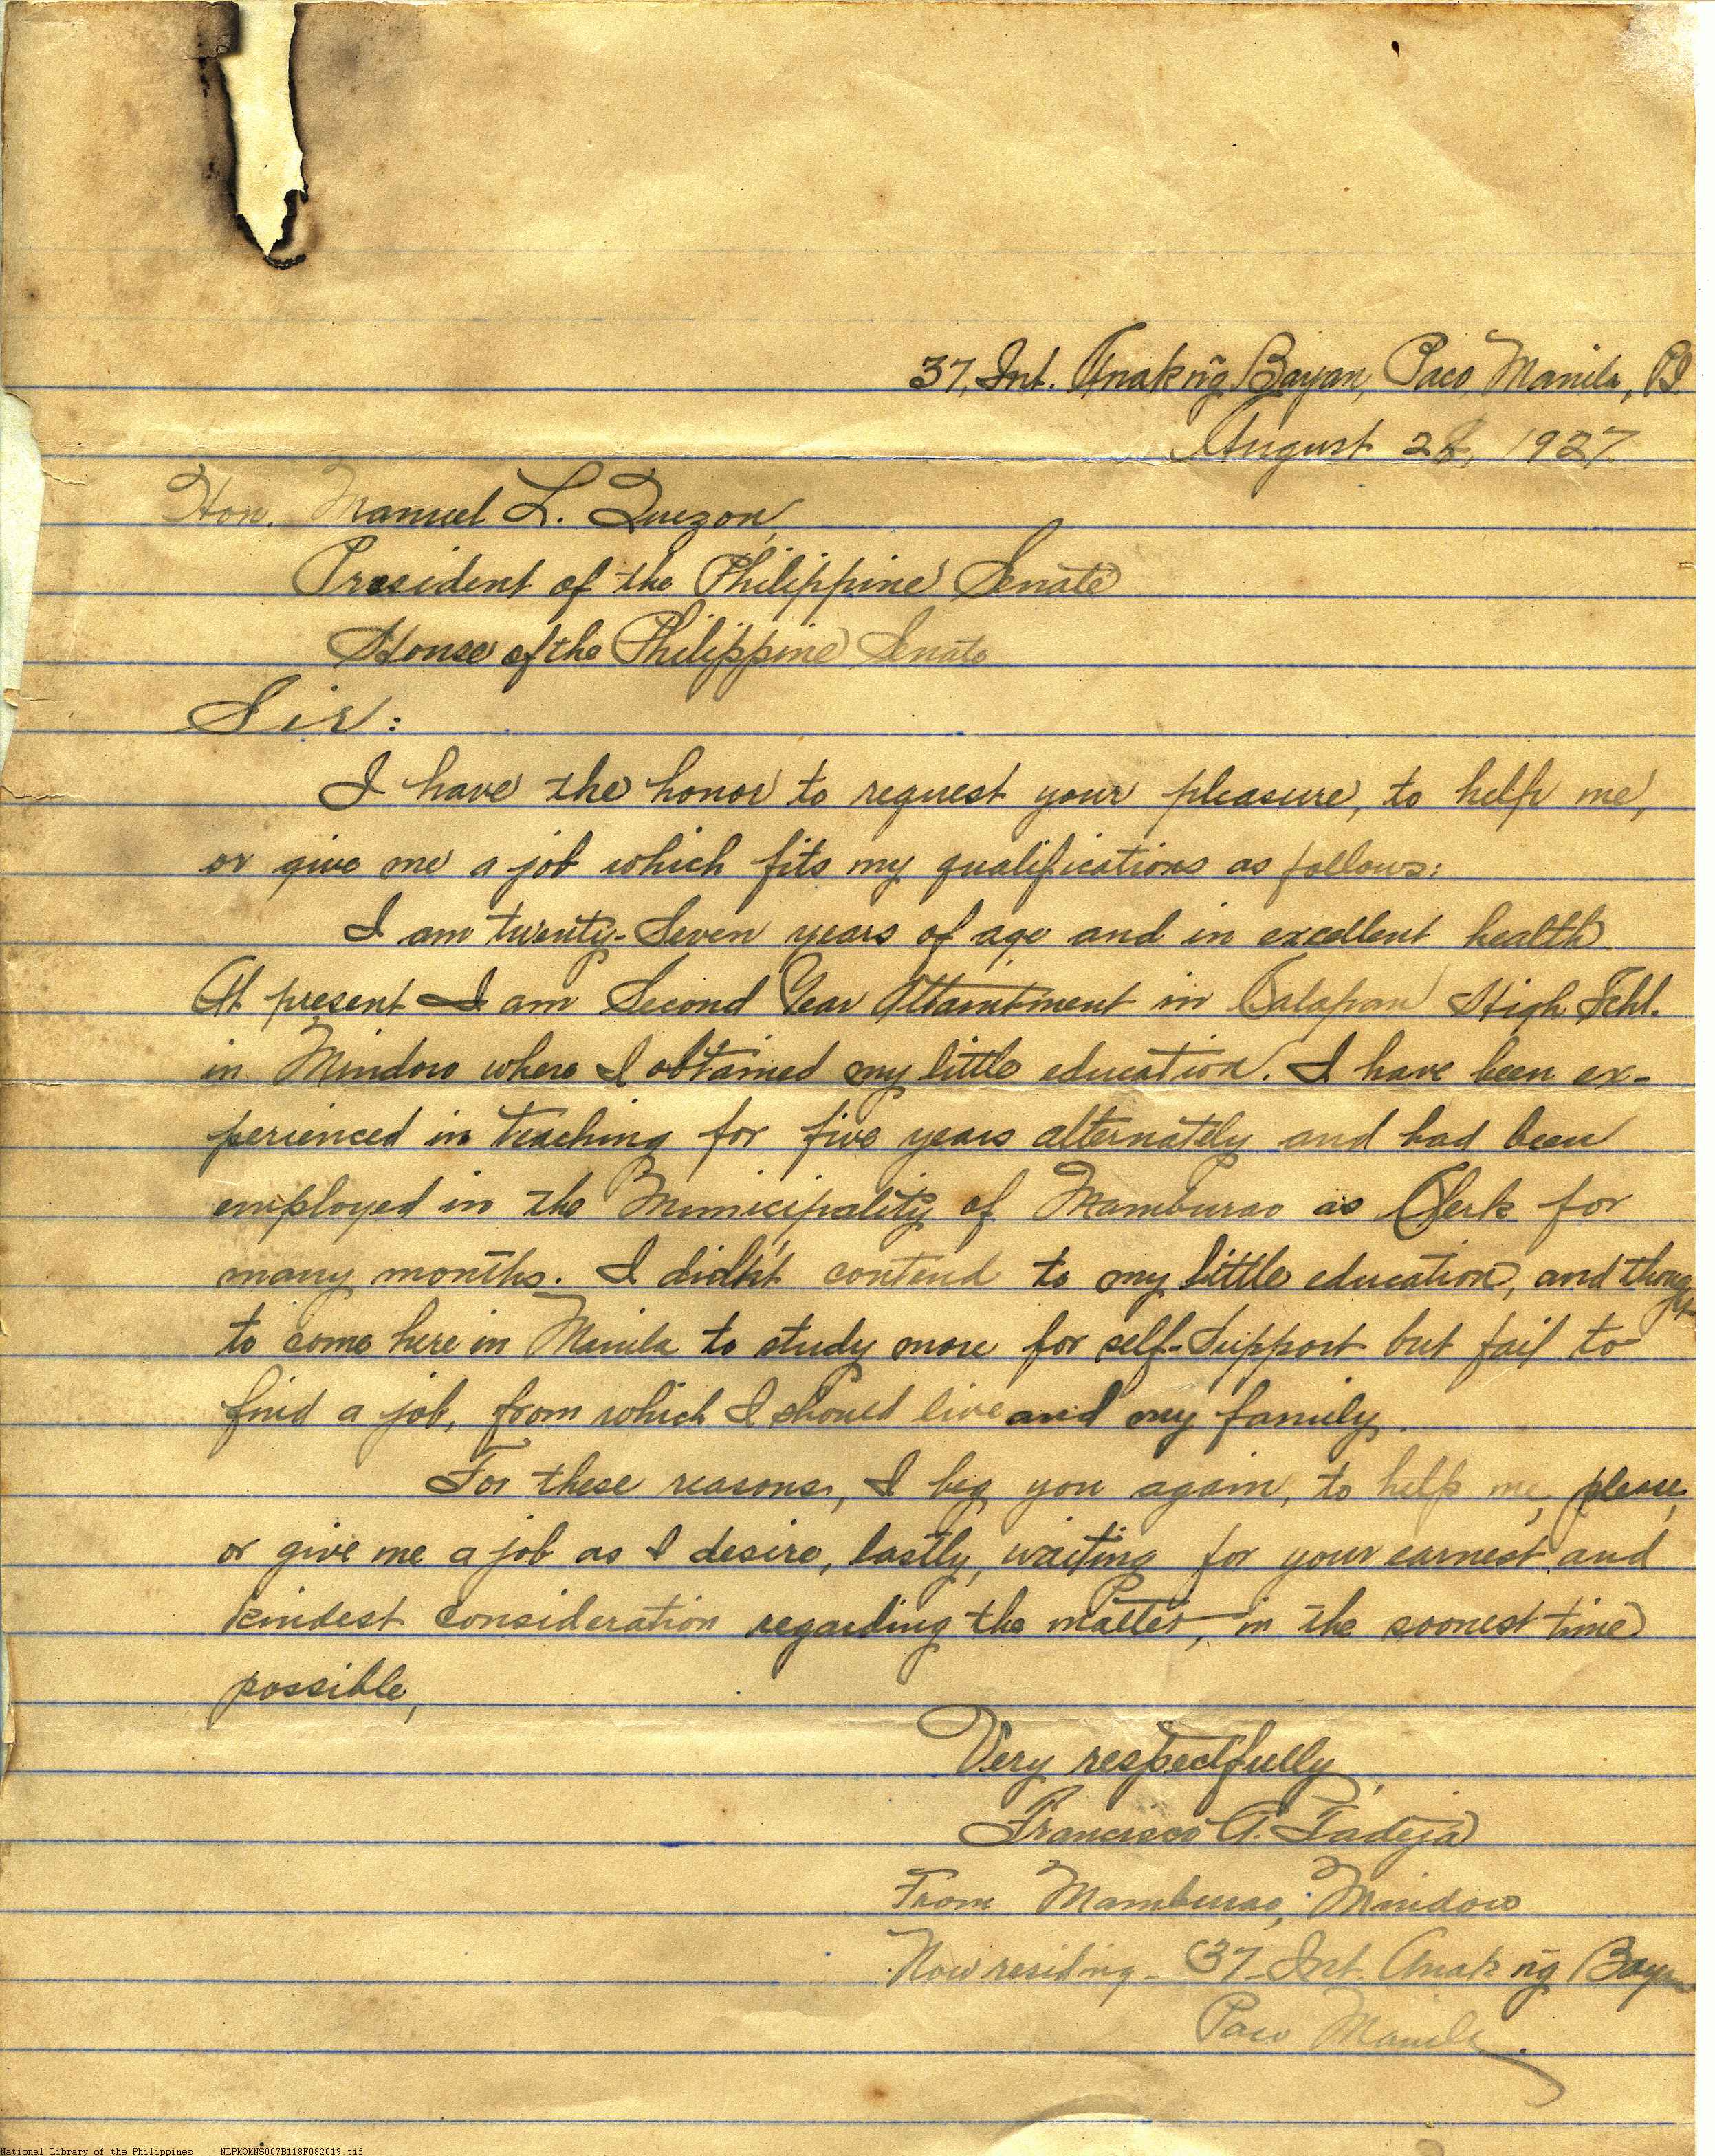 37, Int. Anak ng̃ Bayan, Paco, Manila, P.I.
August 28, 1927.
Hon. Manuel L. Quezon,
President of the Philippine Senate
House of the Philippine Senate
Sir:
I have the honor to request your pleasure, to help me,
or give me a job which fits my qualifications as follows:
I am twenty-seven years of age and in excellent health.
At present I am Second Year Attaintment in Calapan High Schl.
in Mindoro where I obtained my little education. I have been ex-
perienced in teaching for five years alternately and had been
employed in the Municipality of Mamburao as Clerk for
many months. I didn't contend to my little education, and though
to come here in Manila to study more for self-support but fail to
find a job, from which I should live and my family.
For these reasons, I beg you again, to help me, please,
or give me a job as I desire, lastly, waiting for your earnest and
kindest consideration regarding the matter, in the soonest time
possible,
Very respectfully,
Francisco A. Tadeja
From Mamburao, Mindoro
Now residing - 37-Int. Anak ng̃ Bayan
Paco Manila.
National Library of the Philippines NLPMQMNS007B118F082019.tif